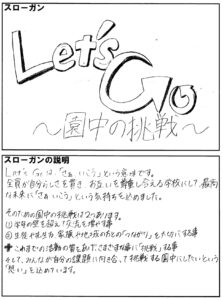 スローガン
Let's
Go
〜園中の挑戦〜
スローガンの説明
Let's Goは「さぁいこう」という意味です。
全員が自分らしさを貫き、お互いを尊重し合える学校にして、最高
な未来に「さぁいこう」という気持ちを込めました。
そのための園中の挑戦は2つあります。
①学年の壁を超えて交流を増やす事
②生徒や先生方、家族や地域の方との「つながり」を大切にする事
これまでの活動の質を
そして、みんなが自分の課題に向き合って挑戦する園中にしたいという
「想い」を込めています。